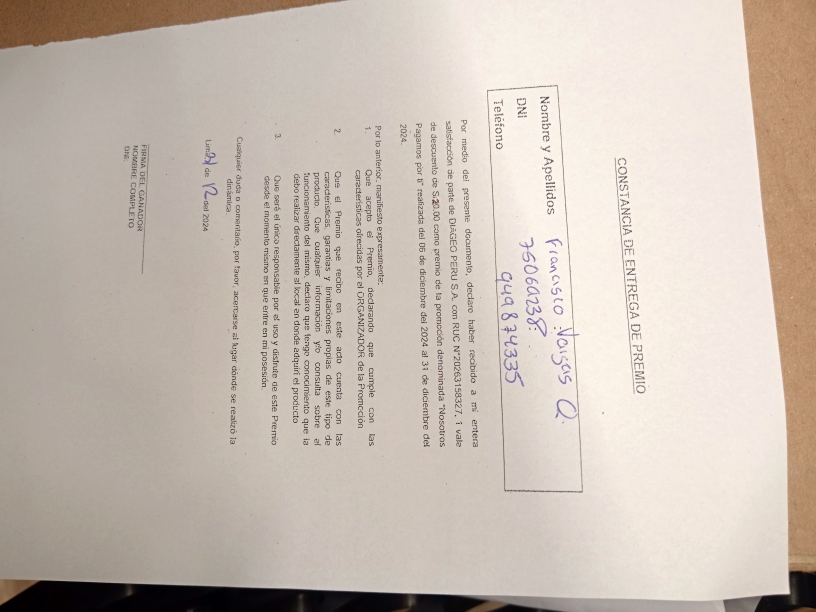 CONSTANCIA DE ENTREGA DE PREMIO
Nombre y Apellidos Francisco Vargas Q.
DNI 75060238?
Teléfono 949874335
Por medio del presente documento, declaro haber recibido a mi entera
satisfacción de parte de DIAGEO PERU S.A. con RUC N°20263158327, 1 vale
de descuento de S/20.00 como premio de la promoción denominada "Nosotros
Pagamos por ti" realizada del 06 de diciembre del 2024 al 31 de diciembre del
2024.
Por lo anterior, manifiesto expresamente:
1. Que acepto el Premio, declarando que cumple con las
características ofrecidas por el ORGANIZADOR de la Promoción
2. Que el Premio que recibo en este acto cuenta con las
características, garantías y limitaciones propias de este tipo de
producto. Que cualquier información y/o consulta sobre el
funcionamiento del mismo, declaro que tengo conocimiento que la
debo realizar directamente al local en donde adquirí el producto
3. Que seré el único responsable por el uso y disfrute de este Premio
desde el momento mismo en que entre en mi posesión.
Cualquier duda o comentario, por favor, acercarse al lugar donde se realizó la
dinámica.
Lima, de 12 del 2024
FIRMA DEL GANADOR
NOMBRE COMPLETO
DNI: